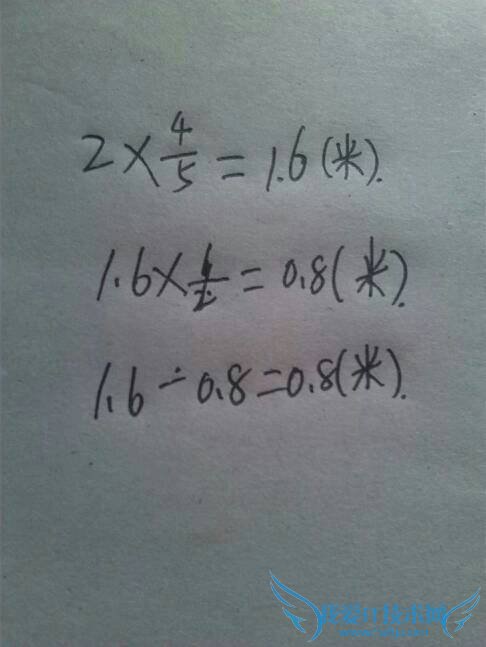 2×4/5=1.6(米).
1.6×1/2=0.8(米).
1.6-0.8=0.8(米).